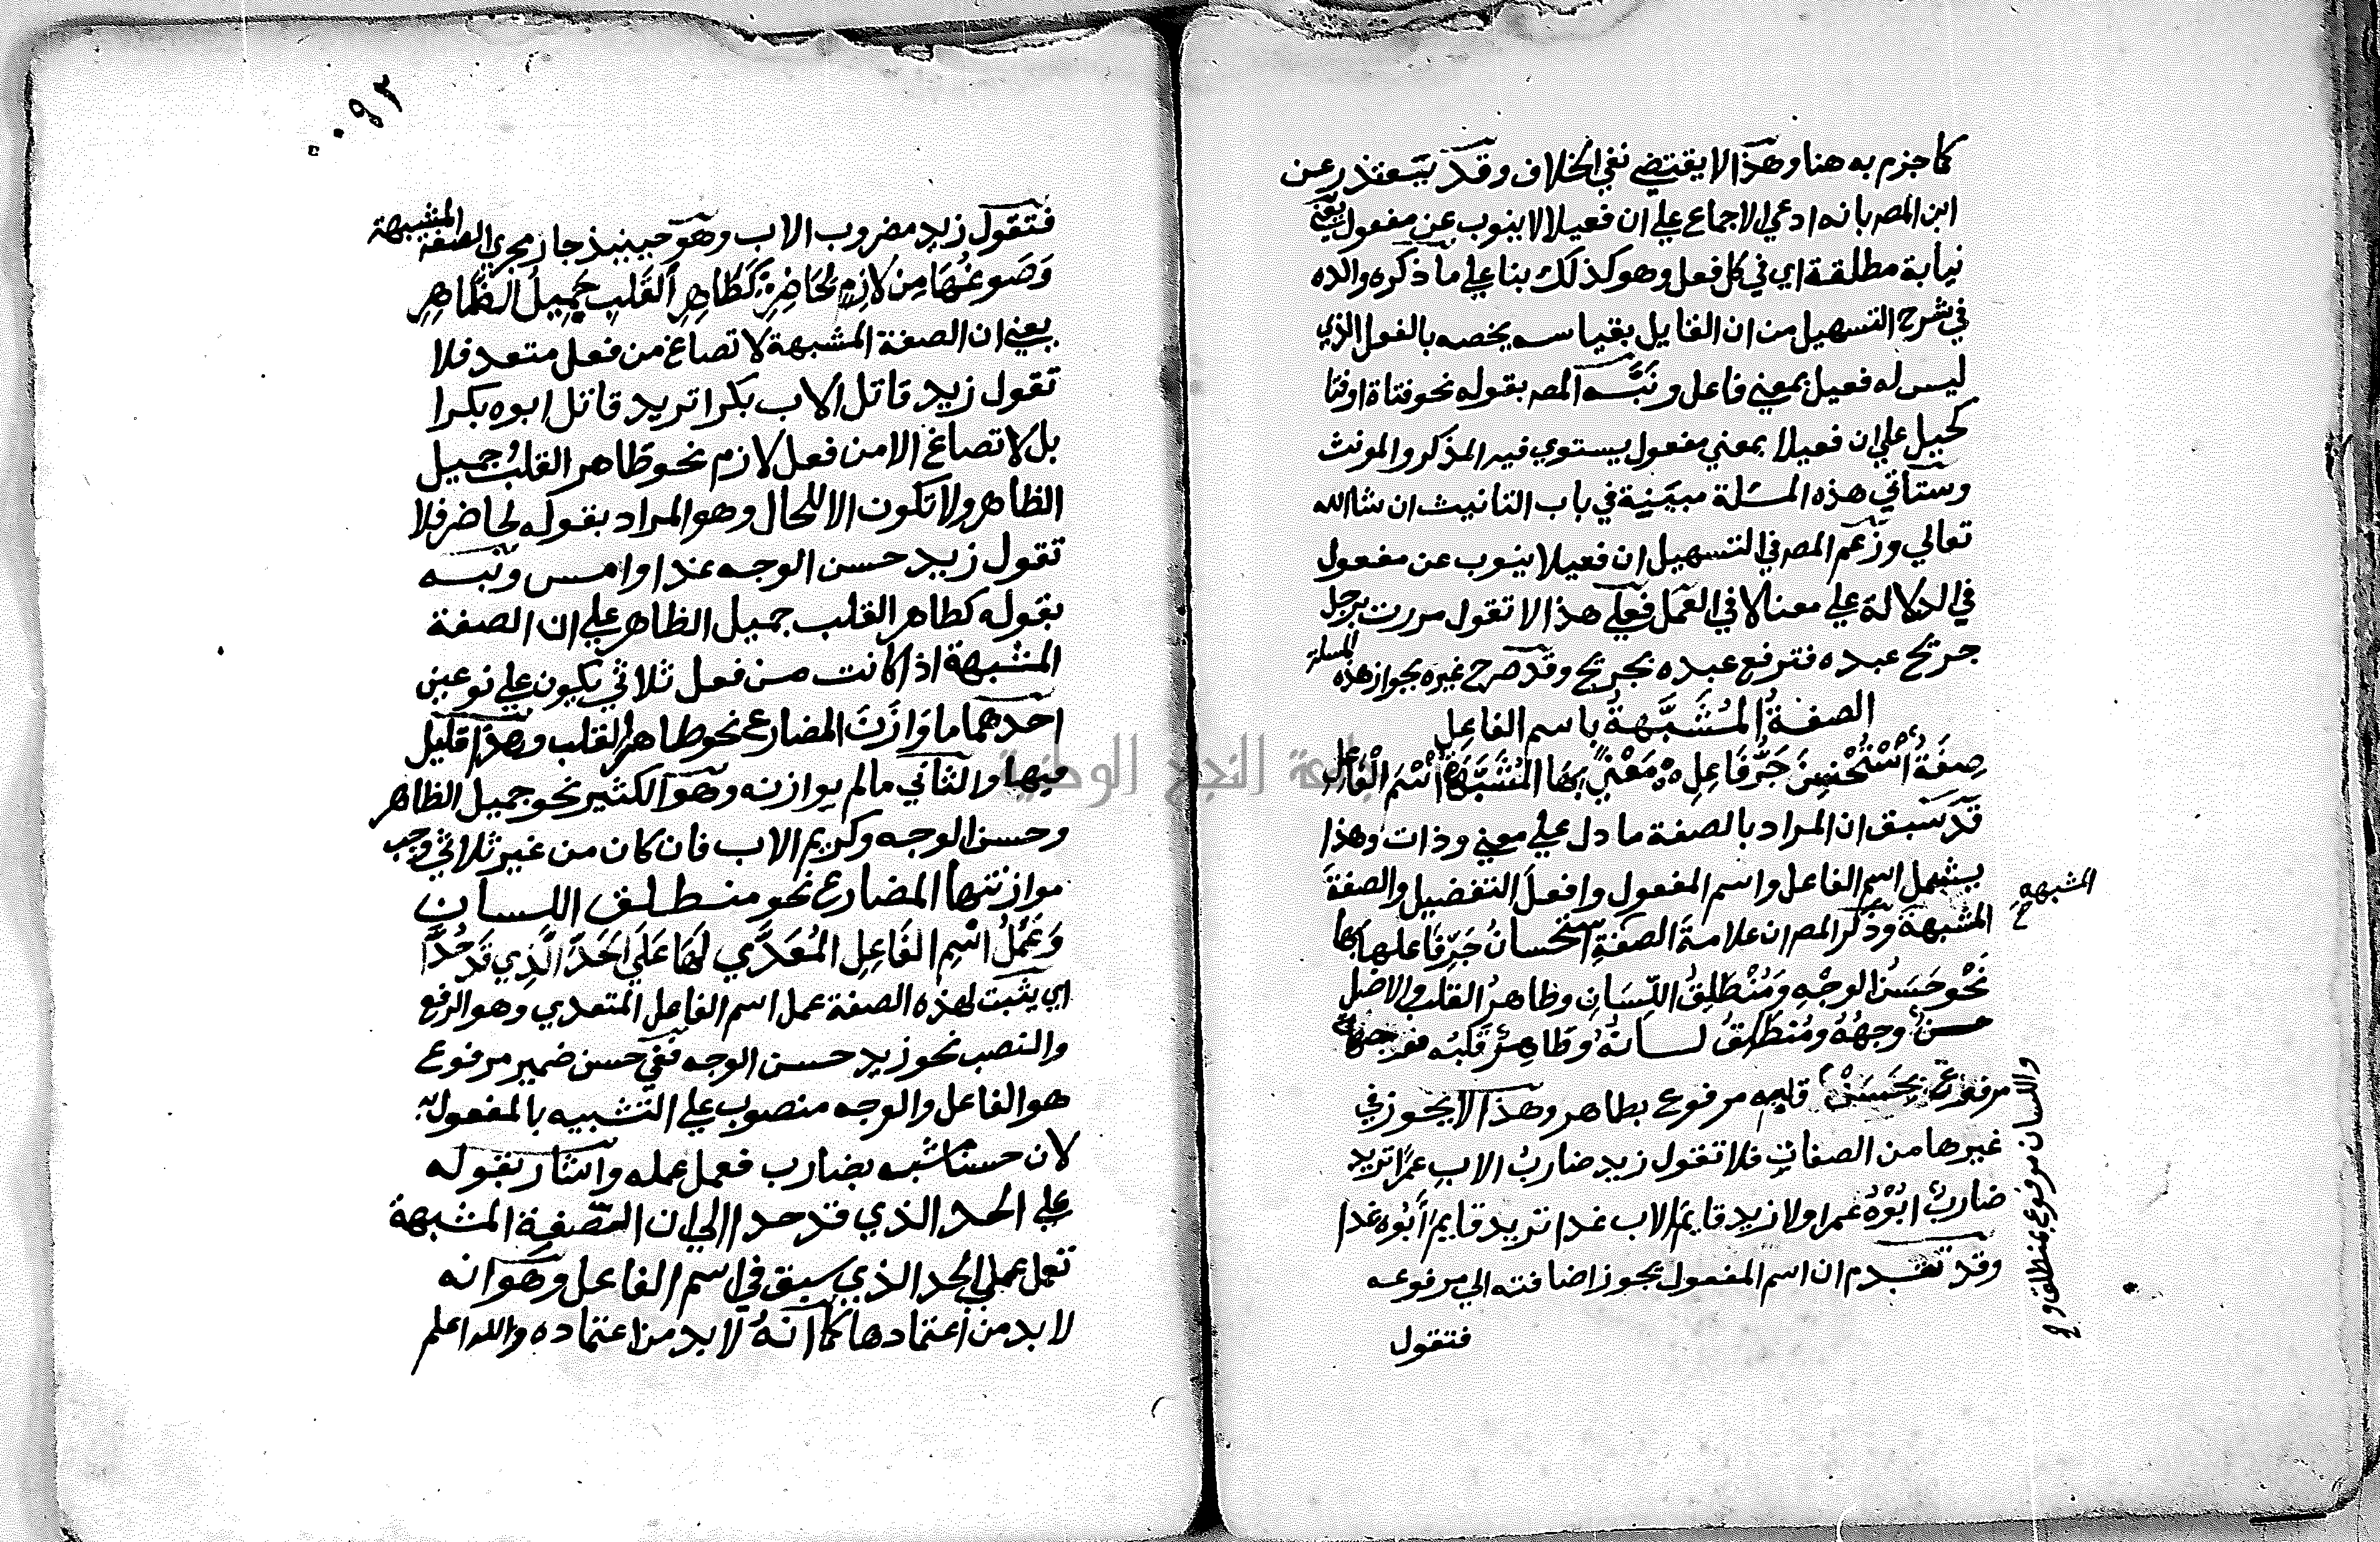 كما جزم به هنا وهذا لا يقتضي نفي الخلاف وقد يعتذر عن
ابن المصه بانه ادعي الاجماع علي ان فعيلا لا ينوب عن مفعول يعني
نيابة مطلقة اي في كل فعل وهو كذلك بنا علي ما ذكره والده
في شرح التسهيل من ان القايل بقياسه يخصه بالفعل الذي
ليس له فعيل بمعني فاعل ونبه المصه بقوله نحو فتاة او فتا
كحيل علي ان فعيلا بمعني مفعول يستوي فيه المذكر والمونث
وستاتي هذه المسئلة مبينة في باب التانيث ان شا الله
تعالي وزعم المصه في التسهيل ان فعيلا ينوب عن مفعول
في الدلالة علي معناه لا في العمل فعلي هذا لا تقول مررت برجل
جريح عبده فترفع عبده بجريح وقد صرح غيره بجواز هذه المسلة
الصفة المشبهة باسم الفاعل
صفة استحسن جر فاعل معني بها المشبهة اسم الفاعل
قد سبق ان المراد بالصفة ما دل علي معني وذات وهذا
يشمل اسم الفاعل واسم المفعول وافعل التفضيل والصفة
المشبهة وذكر المصه ان علامة الصفة استحسان جر فاعلها بها
المشبهه
نحو حسن الوجه ومنطلق اللسان وظاهر القلب والاصل
حسن وجهه ومنطلق لسانه وظاهر قلبه فوجهه
مرفوع بحسن قلبه مرفوع بطاهر وهذا لا يجوز في
واللسان مرفوع بمنطلق و
غيرها من الصفات فلا تقول زيد ضارب الاب عمرا تريد
ضارب ابوه عمرا ولا زيد قايم الاب غدا تريد قايم أبوه غدا
وقد تقدم ان اسم المفعول يجوز اضافته الي مرفوعه
فتقول
٩٢
فتقول زيد مضروب الاب وهو حينيذ جار مجري الصفة المشبهة
وصوغها من لازم لحاضر كطاهر القلب جميل الظاهر
يعني ان الصفة المشبهة لا تصاغ من فعل متعد فلا
تقول زيد قاتل الاب بكرا تريد قاتل ابوه بكرا
بل لا تصاغ الا من فعل لازم نحو طاهر القلب جميل
الظاهر ولا تكون الا للحال وهو المراد بقوله لحاضر فلا
تقول زيد حسن الوجه غدا او امس ونبه
بقوله كطاهر القلب جميل الظاهر علي ان الصفة
المشبهة اذا كانت من فعل ثلاثي يكون علي نوعين
احدهما ما وازن المضارع نحو طاهر القلب وهذا قليل
فيها والثاني مالم يوازنه وهو الكثير نحو جميل الظاهر
وحسن الوجه وكريم الاب فان كان من غير ثلاثي وجب
موازنتها المضارع نحو منطلق اللسان
وعمل اسم الفاعل المعدي لها علي الحد الذي قد حدا
اي يثبت لهذه الصفة عمل اسم الفاعل المتعدي وهو الرفع
والنصب نحو زيد حسن الوجه ففي حسن ضمير مرفوع
هو الفاعل والوجه منصوب علي التشبيه بالمفعول به
لان حسنا شبه بضارب فعمل عمله واشار بقوله
علي الحد الذي قد حدا الي ان الصفة المشبهة
تعمل علي الحد الذي سبق في اسم الفاعل وهو انه
لا بد من اعتمادها كما انه لا بد من اعتماده والله اعلم